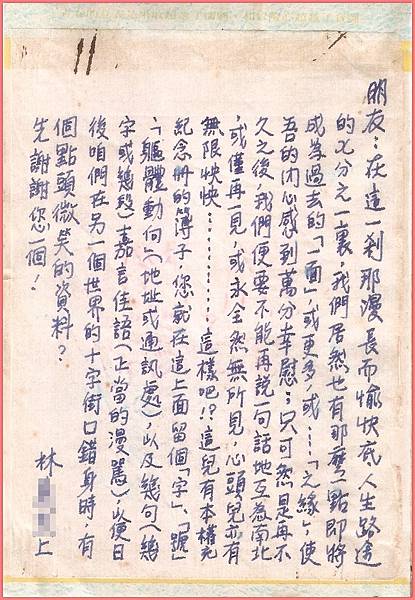 朋友：在這一剎那漫長而愉快底人生路途
的X分之一裏，我們居然也有那麼一點即將
成為過去的「一面」，或更多，或…「之緣」，使
吾的內心感到萬分幸慰；只可然是再不
久之後，我們便要不能再說句話地互為南北
，或僅再一見，或永全然無所見，心頭兒亦有
無限怏怏………… 這樣吧!?這兒有本權充
紀念冊的簿子，您就在這上面留個「字」、「號」
、「軀體動向」(地址或通訊處)，以及幾句(幾
字或幾段)嘉言佳語(正當的漫罵)，以便日
後咱們在另一個世界的十字街口錯身時，有
個點頭微笑的資料？
先謝謝您一個！
林 上